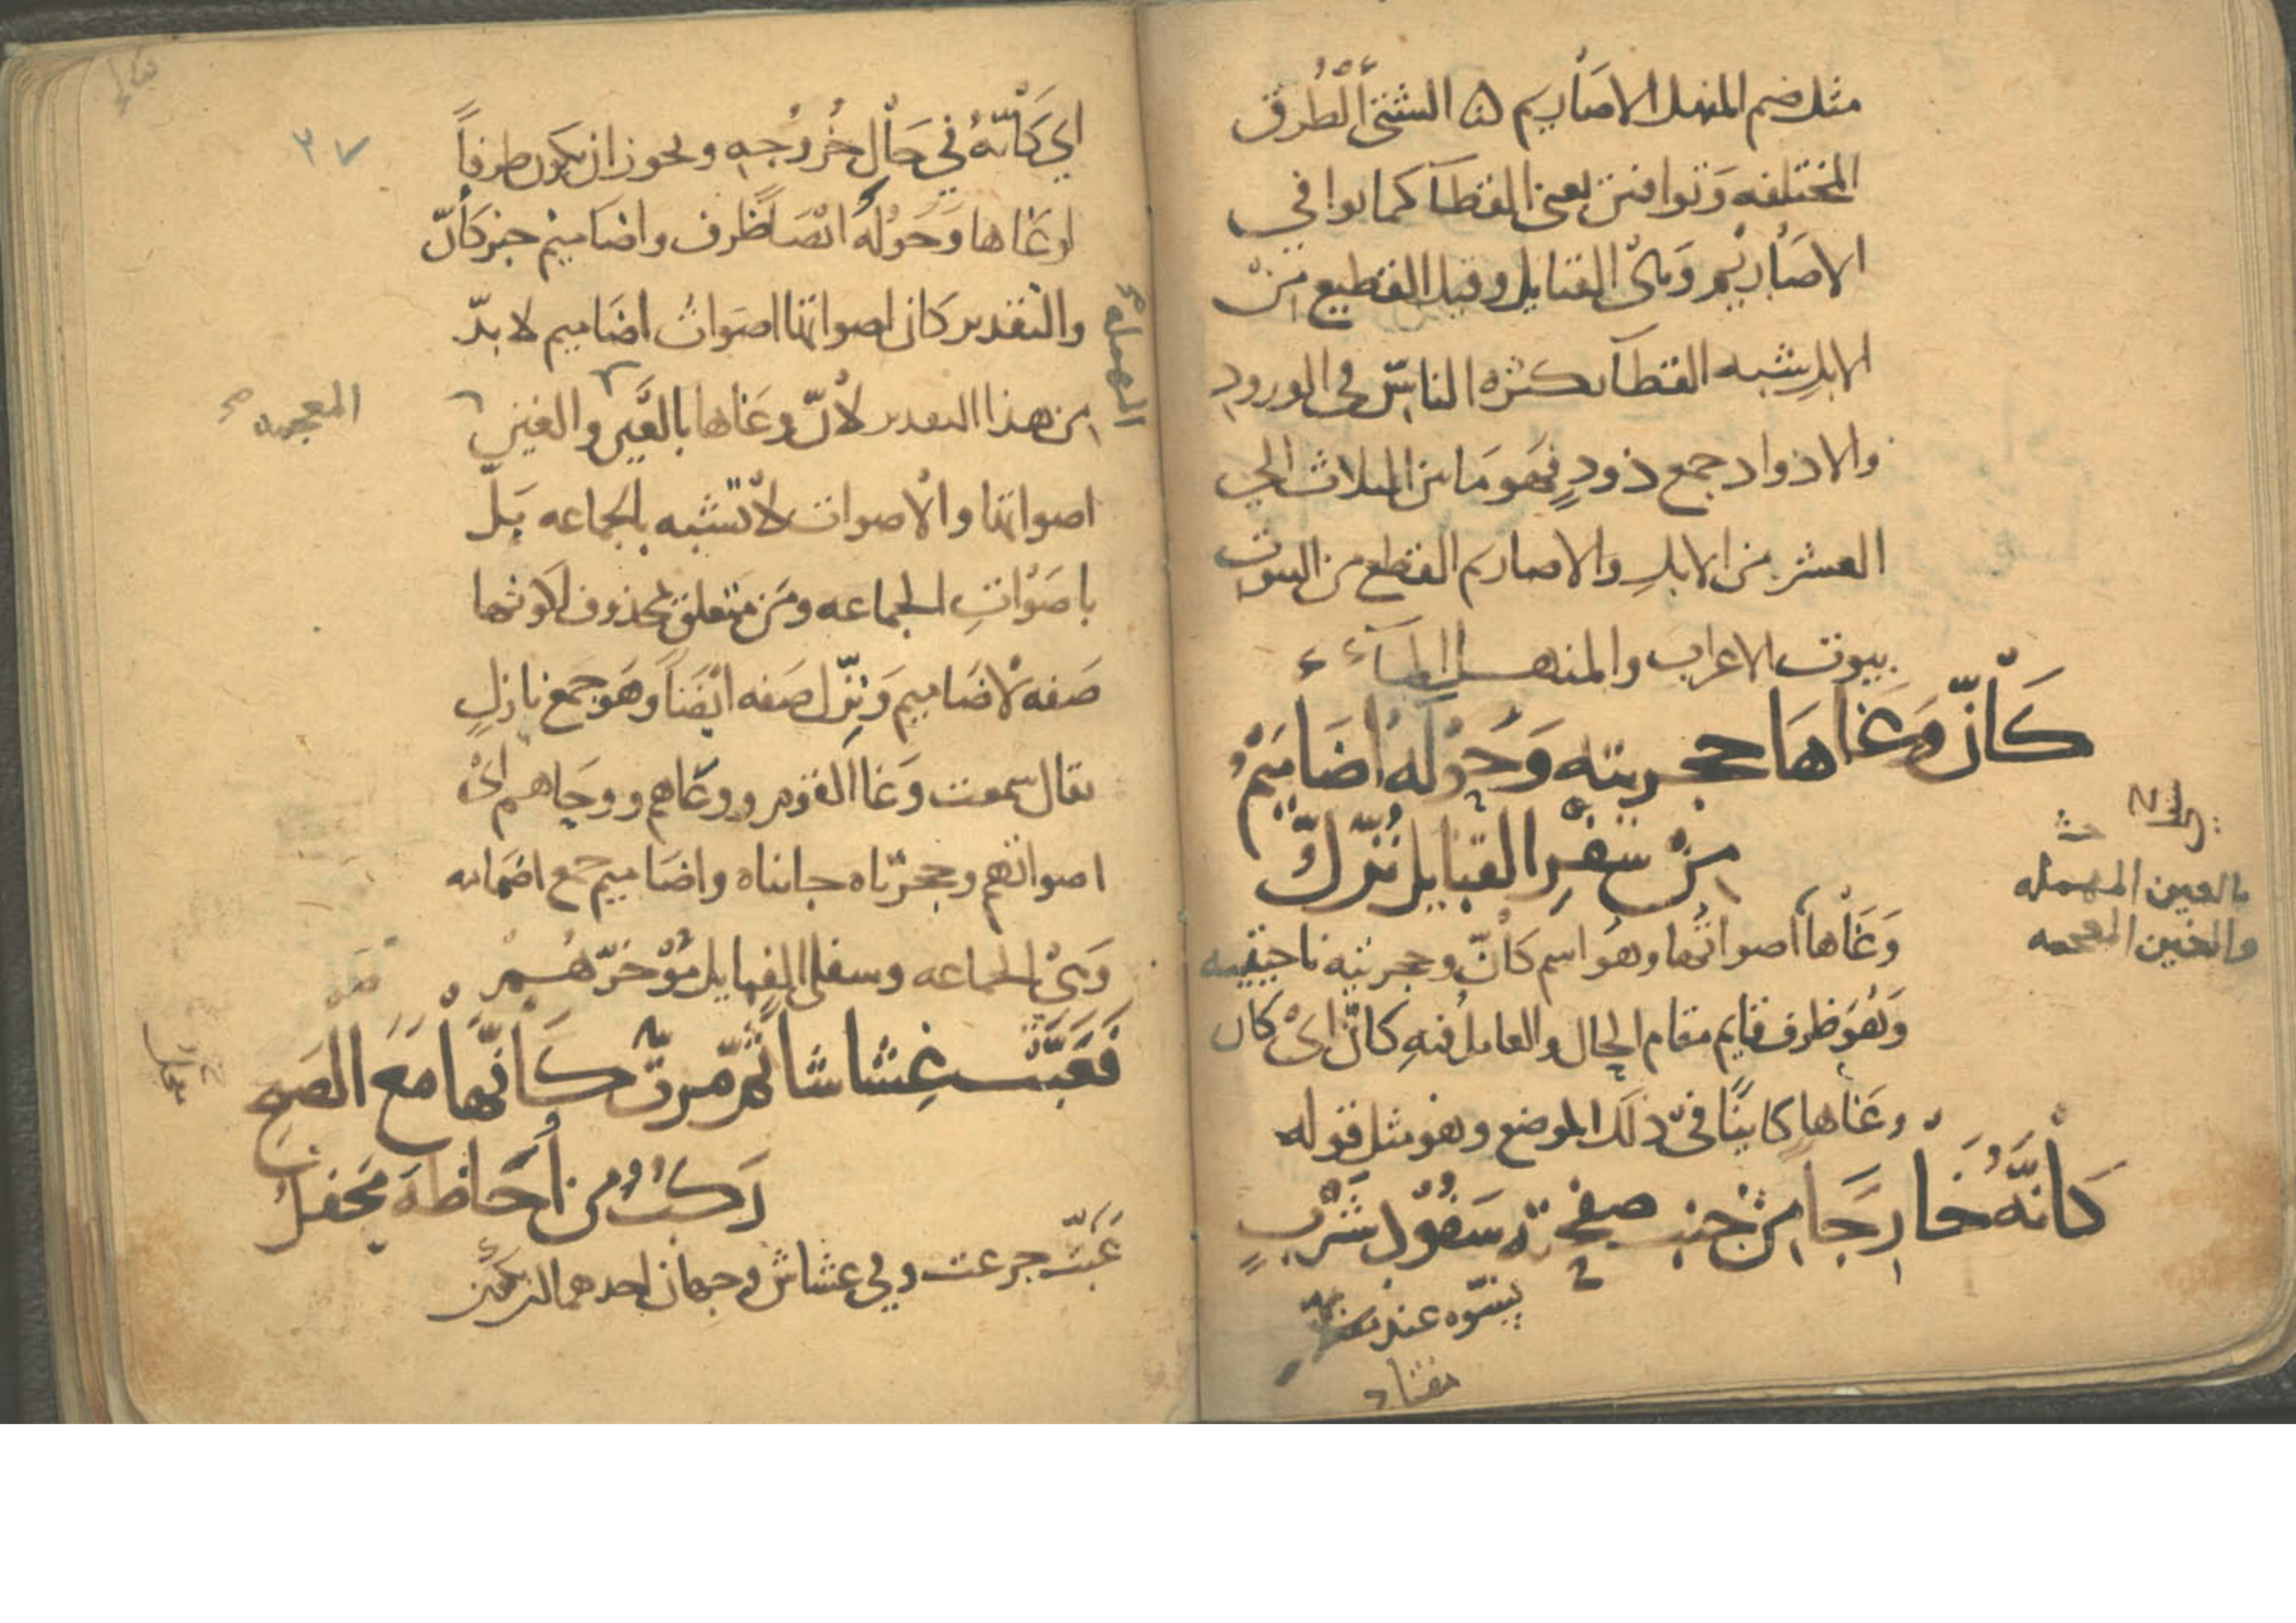 مثل ضم المنهل الاصاريم شتى الطرق
المختلفه وتوافين يعني القطا كما توافي
الاصاريم وهي القبايل وقيل القطيع من
الابل شبه القطا بكثره الناس في الورود
والاذواد جمع ذود فهو ما بين الثلاث الى
العشر من الابل والاصاريم القطع من البيوت
بيوت الاعراب والمنهل الماء
كَأَنَّ وَغَاهَا حجرتيه وَحَوْلَهُ أَضَامِيمُ
مِنْ سَفْرِ القبايل نُزَّلُ
بالعين المهمله
والغين المعجمه
وَغَاها اصواتها وهو اسم كأنّ وحجرتيه ناحيتيه
وَهُوَ ظرف قايم مقام الحال والعامل فيه كأنّ اي كان
وغاها كاينًا في ذلك الموضع وهو مثل قوله
كَأَنَّهُ خَارِجًا مِنْ جَنْبِ صفحته سَفُّودُ شَرْبٍ
نسوه عند مفتأد
اي كَأَنَّهُ في حَالِ خُرُوجِهِ ويجوز ان يكون ظرفاً
لوغاها وَحَوْلَهُ ايْضًا ظرف واضاميم خبر كأنّ
والتقدير كان اصواتها اصوات اضاميم لا بدّ
من هذا التقدير لأنّ وغاها بالعين والغين
المهمله
المعجمه
اصواتها والاصوات لا تشبه بالجماعه بَل
باصوات الجماعه ومن متعلق بمحذوف لكونها
صفه لاضاميم وَنزّل صفه ايْضًا وهو جمع نازل
يقال سمعت وَغا القوم ووعاهم ووحاهم اي
اصواتهم وحجرتاه جانباه واضاميم جمع اضمامه
وَهي الجماعه وسفلى القبايل مؤخرهم
فَعَبَّتْ غِشاشا ثُمَّ مرتْ كَأَنَّها مَعَ الصبح
رَكْبٌ من أُحَاظَة مجفل
عَبَّت جرعت وفي غشاش وجهان احدهما ان يكون
٢٧